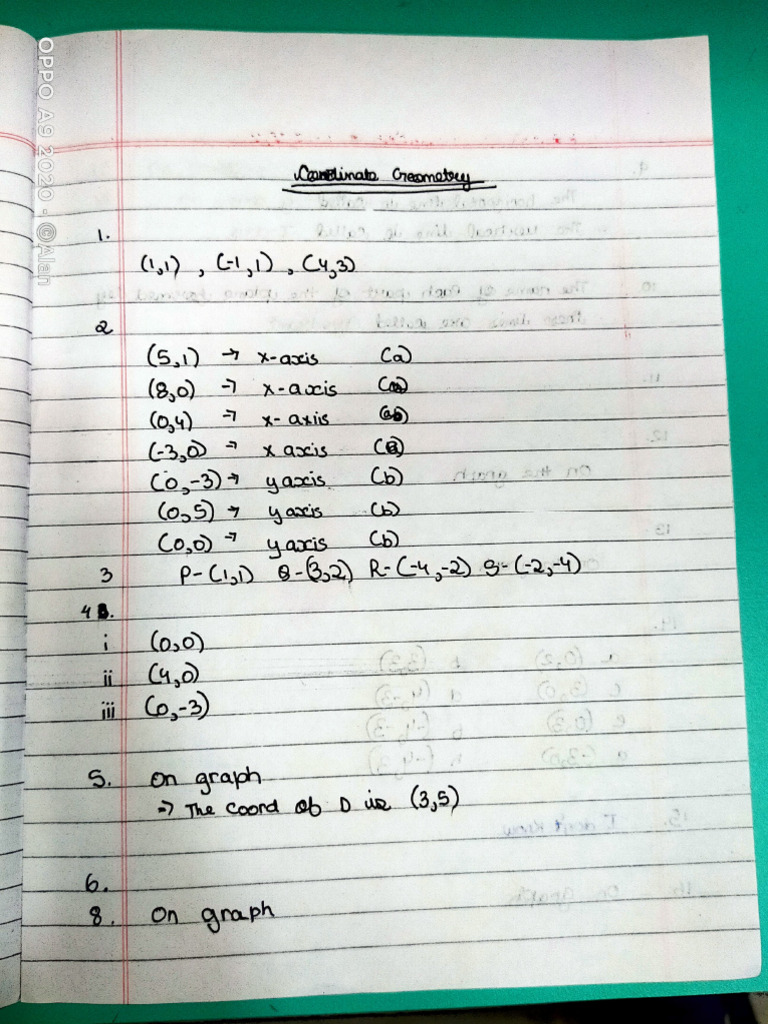 Coordinate Geometry
1.
(1,1) , (-1,1) , (4,3)
2
(5,1) → x-axis (a)
(8,0) → x-axis (a)
(0,4) → x-axiis (b)
(-3,0) → x axis (a)
(0,-3) → y axis (b)
(0,5) → y axis (b)
(0,0) → y axis (b)
3 P-(1,1) Q-(3,2) R-(-4,-2) S-(-2,-4)
4
i (0,0)
ii (4,0)
iii (0,-3)
5. On graph
⇒ The coord of D is (3,5)
6.
8. On graph
OPPO A9 2020 · ©Alan